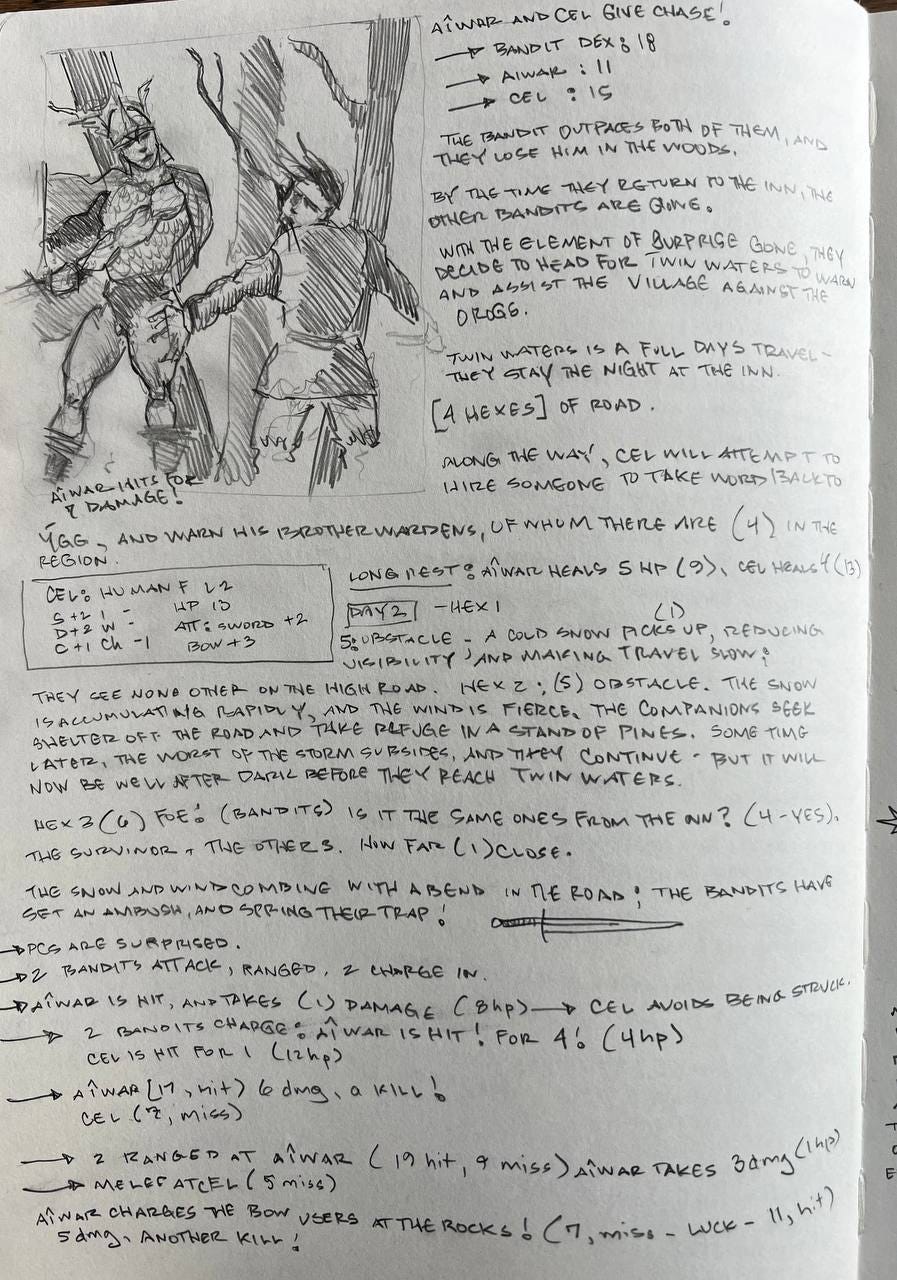 AÎWAR AND CEL GIVE CHASE!
→ BANDIT DEX: 18
→ AIWAR : 11
→ CEL : 15
THE BANDIT OUTPACES BOTH OF THEM, AND
THEY LOSE HIM IN THE WOODS.
BY THE TIME THEY RETURN TO THE INN, THE
OTHER BANDITS ARE GONE.
WITH THE ELEMENT OF SURPRISE GONE, THEY
DECIDE TO HEAD FOR TWIN WATERS TO WARN
AND ASSIST THE VILLAGE AGAINST THE
TWIN WATERS IS A FULL DAYS TRAVEL -
THEY STAY THE NIGHT AT THE INN.
[4 HEXES] OF ROAD.
ALONG THE WAY, CEL WILL ATTEMPT TO
HIRE SOMEONE TO TAKE WORD BACK TO
AÎWAR HITS FOR
DAMAGE!
YGG, AND WARN HIS BROTHER WARDENS, OF WHOM THERE ARE (4) IN THE
REGION.
CEL: HUMAN F L2
S+2 I - HP 13
D+2 W - ATT: SWORD +2
C+1 Ch -1 BOW +3
LONG REST: AÎWAR HEALS 5 HP (9), CEL HEALS 4 (13)
DAY 2 - HEX 1 (1)
5: OBSTACLE - A COLD SNOW PICKS UP, REDUCING
VISIBILITY AND MAKING TRAVEL SLOW.
THEY SEE NONE OTHER ON THE HIGH ROAD. HEX 2: (5) OBSTACLE. THE SNOW
IS ACCUMULATING RAPIDLY, AND THE WIND IS FIERCE. THE COMPANIONS SEEK
SHELTER OFF THE ROAD AND TAKE REFUGE IN A STAND OF PINES. SOME TIME
LATER, THE WORST OF THE STORM SUBSIDES, AND THEY CONTINUE - BUT IT WILL
NOW BE WELL AFTER DARK BEFORE THEY REACH TWIN WATERS.
HEX 3 (6) FOE! (BANDITS) IS IT THE SAME ONES FROM THE INN? (4-YES).
THE SURVIVOR + THE OTHER 3. HOW FAR (1) CLOSE.
THE SNOW AND WIND COMBINE WITH A BEND IN THE ROAD; THE BANDITS HAVE
SET AN AMBUSH, AND SPRING THEIR TRAP!
→ PCS ARE SURPRISED.
→ 2 BANDITS ATTACK, RANGED, 2 CHARGE IN.
→ AÎWAR IS HIT, AND TAKES (1) DAMAGE (8hp) → CEL AVOIDS BEING STRUCK.
→ 2 BANDITS CHARGE: AÎWAR IS HIT! FOR 4! (4hp)
CEL IS HIT FOR 1 (12hp)
→ AÎWAR (17, hit) 6 dmg, a KILL!
CEL (7, miss)
→ 2 RANGED AT AÎWAR (19 hit, 9 miss) AÎWAR TAKES 3dmg (1hp)
→ MELEE AT CEL (5 miss)
AÎWAR CHARGES THE BOW USERS AT THE ROCKS! (7, miss - LUCK - 11, hit)
5 dmg, ANOTHER KILL!